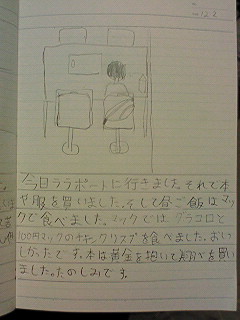 今日ララポートに行きました。それで本
や服を買いました。そして昼ご飯はマッ
クで食べました。マックではグラコロと
100円マックのチキンクリスプを食べました。おい
しかったです。本は黄金を抱いて翔べを買い
ました。たのしみです。